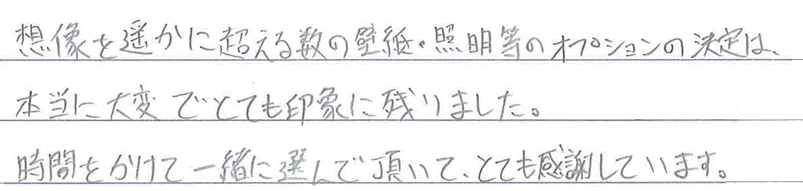 想像を遥かに超える数の壁紙・照明等のオプションの決定は、
本当に大変でとても印象に残りました。
時間をかけて一緒に選んで頂いて、とても感謝しています。